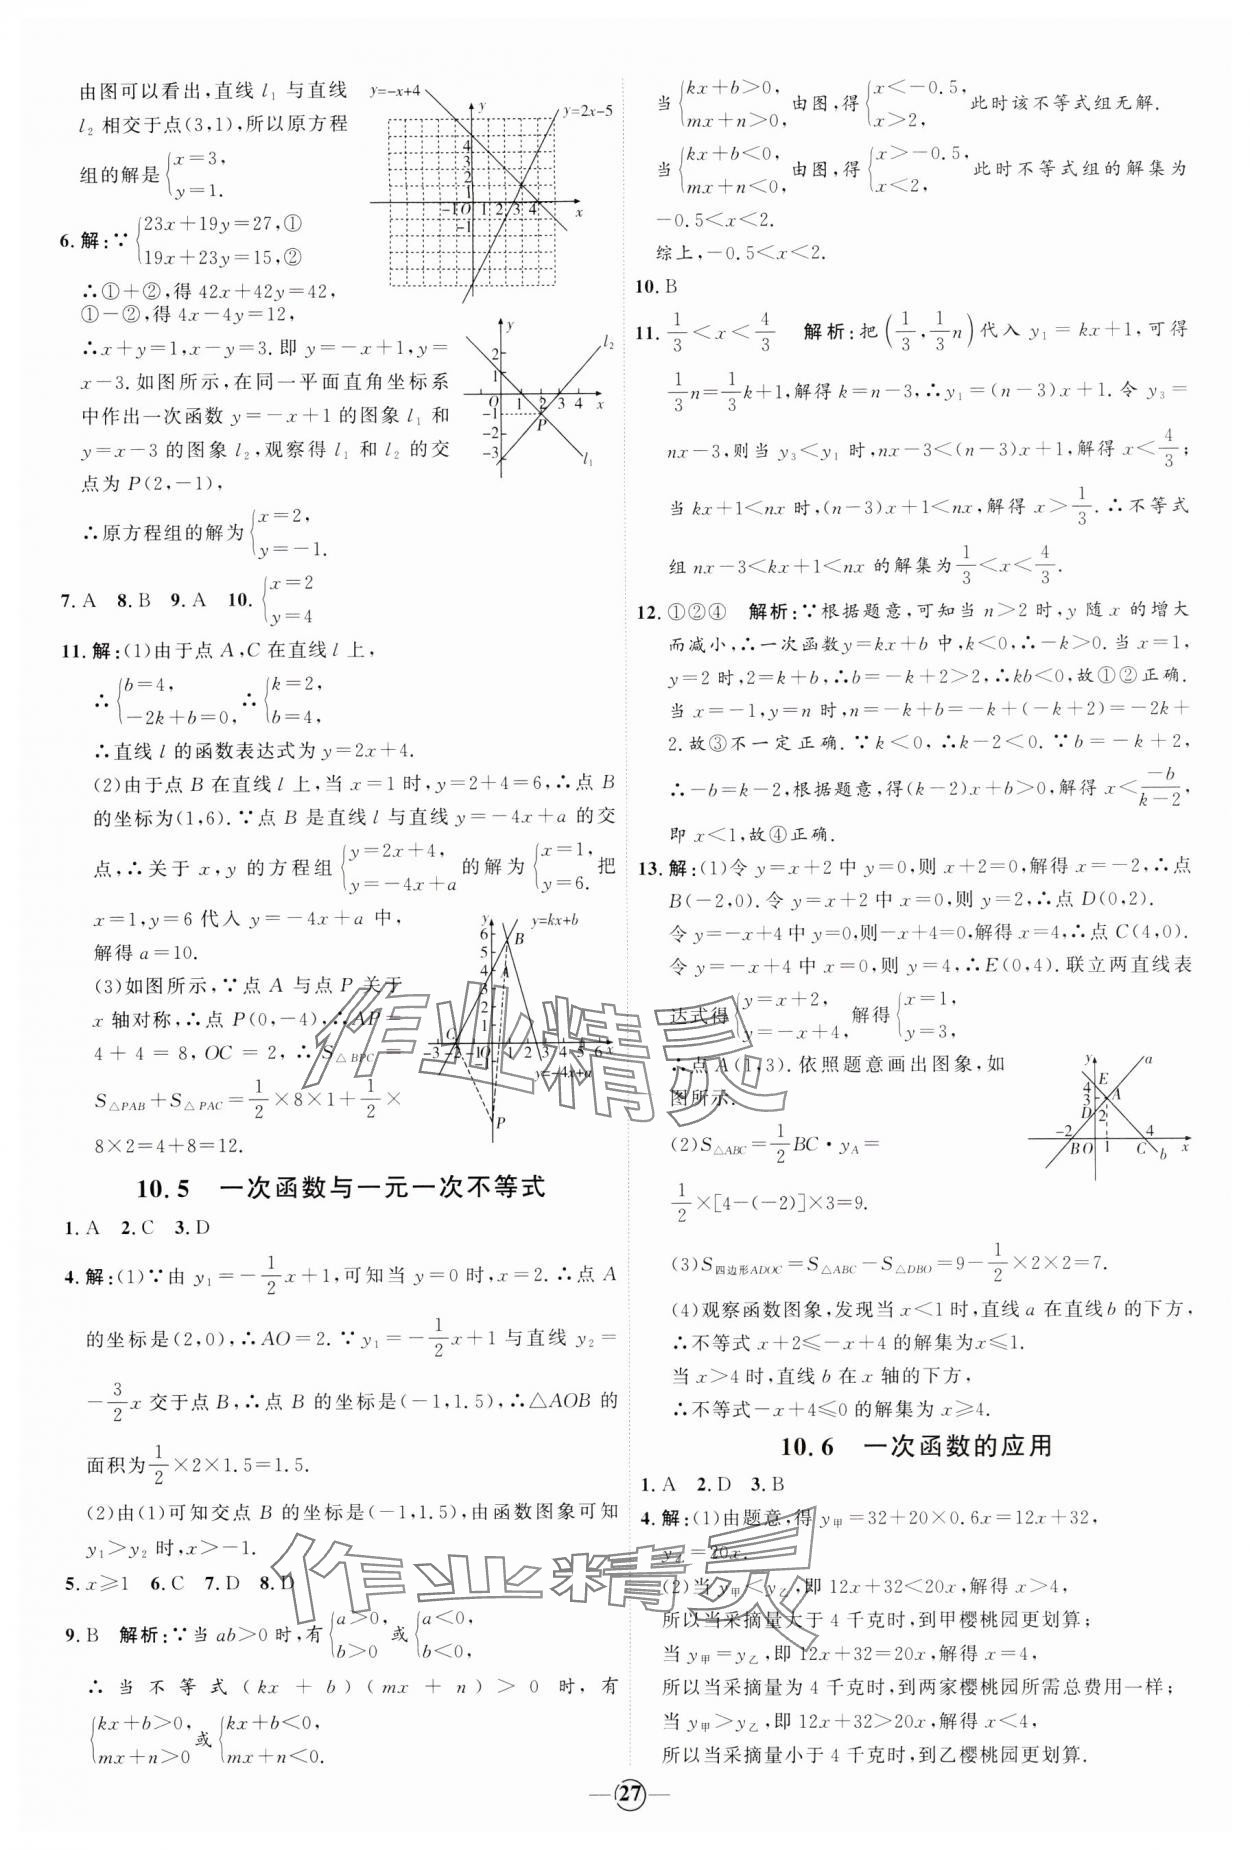 由图可以看出,直线 l₁ 与直线
l₂ 相交于点(3,1),所以原方程
组的解是{x=3, y=1.
y=-x+4
y=2x-5
6. 解:∵{23x+19y=27,① 19x+23y=15,②
∴①+②,得 42x+42y=42,
①-②,得 4x-4y=12,
∴x+y=1,x-y=3. 即 y=-x+1,y=
x-3. 如图所示,在同一平面直角坐标系
中作出一次函数 y=-x+1 的图象 l₁ 和
y=x-3 的图象 l₂,观察得 l₁ 和 l₂ 的交
点为 P(2,-1),
∴原方程组的解为{x=2, y=-1.
7. A 8. B 9. A 10. {x=2 y=4
11. 解:(1)由于点 A,C 在直线 l 上,
∴{b=4, -2k+b=0, ∴{k=2, b=4,
∴直线 l 的函数表达式为 y=2x+4.
(2)由于点 B 在直线 l 上,当 x=1 时,y=2+4=6,∴点 B
的坐标为(1,6). ∵点 B 是直线 l 与直线 y=-4x+a 的交
点,∴关于 x,y 的方程组{y=2x+4, y=-4x+a 的解为{x=1, y=6. 把
x=1,y=6 代入 y=-4x+a 中,
解得 a=10.
(3)如图所示,∵点 A 与点 P 关于
x 轴对称,∴点 P(0,-4),∴AP=
4+4=8,OC=2,∴S△BPC=
S△PAB+S△PAC=1/2×8×1+1/2×
8×2=4+8=12.
y=kx+b
y=-4x+a
10.5 一次函数与一元一次不等式
1. A 2. C 3. D
4. 解:(1)∵由 y₁=-1/2x+1,可知当 y=0 时,x=2. ∴点 A
的坐标是(2,0),∴AO=2. ∵y₁=-1/2x+1 与直线 y₂=
-3/2x 交于点 B,∴点 B 的坐标是(-1,1.5),∴△AOB 的
面积为1/2×2×1.5=1.5.
(2)由(1)可知交点 B 的坐标是(-1,1.5),由函数图象可知
y₁>y₂ 时,x>-1.
5. x≥1 6. C 7. D 8. D
9. B 解析:∵当 ab>0 时,有{a>0, b>0 或{a<0, b<0,
∴当不等式(kx+b)(mx+n)>0 时,有
{kx+b>0, mx+n>0 或{kx+b<0, mx+n<0.
当{kx+b>0, mx+n>0, 由图,得{x<-0.5, x>2, 此时该不等式组无解.
当{kx+b<0, mx+n<0, 由图,得{x>-0.5, x<2, 此时不等式组的解集为
-0.5<x<2.
综上,-0.5<x<2.
10. B
11. 1/3<x<4/3 解析:把(1/3,1/3n)代入 y₁=kx+1,可得
1/3n=1/3k+1,解得 k=n-3,∴y₁=(n-3)x+1. 令 y₃=
nx-3,则当 y₃<y₁ 时,nx-3<(n-3)x+1,解得 x<4/3;
当 kx+1<nx 时,(n-3)x+1<nx,解得 x>1/3. ∴不等式
组 nx-3<kx+1<nx 的解集为1/3<x<4/3.
12. ①②④ 解析:∵根据题意,可知当 n>2 时,y 随 x 的增大
而减小,∴一次函数y=kx+b 中,k<0,∴-k>0. 当 x=1,
y=2 时,2=k+b,∴b=-k+2>2,∴kb<0,故①②正确.
当 x=-1,y=n 时,n=-k+b=-k+(-k+2)=-2k+
2. 故③不一定正确. ∵k<0,∴k-2<0. ∵b=-k+2,
∴-b=k-2,根据题意,得(k-2)x+b>0,解得 x<-b/k-2,
即 x<1,故④正确.
13. 解:(1)令 y=x+2 中 y=0,则 x+2=0,解得 x=-2,∴点
B(-2,0). 令 y=x+2 中 x=0,则 y=2,∴点 D(0,2).
令 y=-x+4 中 y=0,则-x+4=0,解得 x=4,∴点 C(4,0).
令 y=-x+4 中 x=0,则 y=4,∴E(0,4). 联立两直线表
达式得{y=x+2, y=-x+4, 解得{x=1, y=3,
∴点 A(1,3). 依照题意画出图象,如
图所示.
(2)S△ABC=1/2BC·yA=
1/2×[4-(-2)]×3=9.
(3)S四边形ADOC=S△ABC-S△DBO=9-1/2×2×2=7.
(4)观察函数图象,发现当 x<1 时,直线 a 在直线 b 的下方,
∴不等式 x+2≤-x+4 的解集为x≤1.
当 x>4 时,直线 b 在 x 轴的下方,
∴不等式-x+4≤0 的解集为 x≥4.
10.6 一次函数的应用
1. A 2. D 3. B
4. 解:(1)由题意,得 y甲=32+20×0.6x=12x+32,
y乙=20x.
(2)当 y甲<y乙,即 12x+32<20x,解得 x>4,
所以当采摘量大于 4 千克时,到甲樱桃园更划算;
当 y甲=y乙,即 12x+32=20x,解得 x=4,
所以当采摘量为 4 千克时,到两家樱桃园所需总费用一样;
当 y甲>y乙,即 12x+32>20x,解得 x<4,
所以当采摘量小于 4 千克时,到乙樱桃园更划算.
作业精灵
作业精灵
27